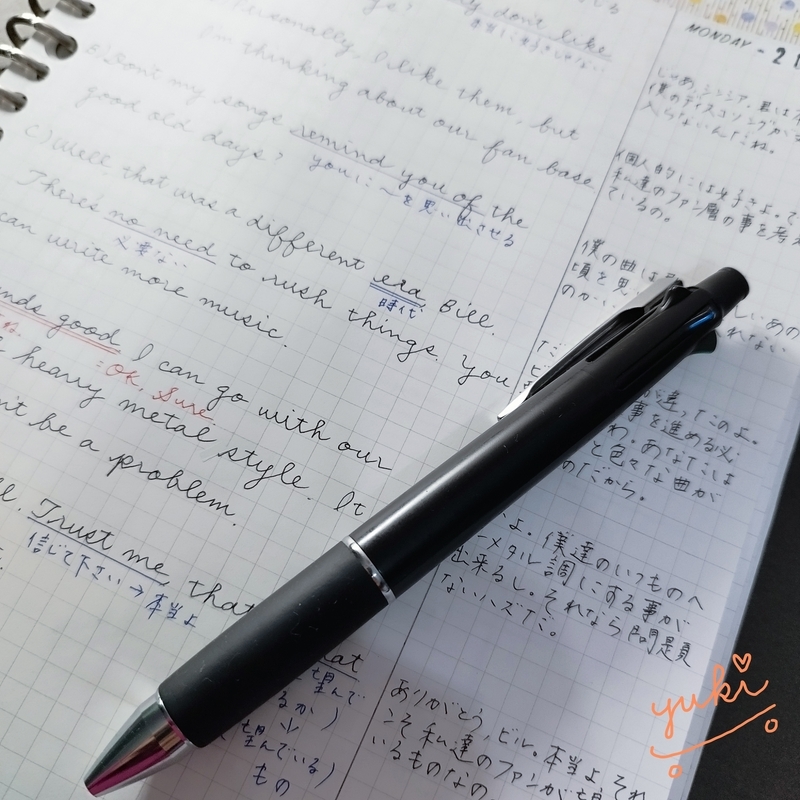 y don't like
Personally, I like them, but
I'm thinking about our fan base
B) Don't my songs remind you of the
youに〜を思い出させる
good old days?
C) Well, that was a different era, Bill.
時代
There's no need to rush things. You
必要ない
can write more music.
nds good. I can go with our
=OK, Sure
heavy metal style. It
n't be a problem.
Trust me, that
信じて下さい→本当よ
at
望んで
るか)
望んでいる)
もの
MONDAY - 2
じゃあ、シンシア、君は
僕のディスコソングが
入らないんだね。
個人的には好きよ。で
私達のファン層の事を考
ているの。
僕の曲は
頃を思
のかい
が違ったのよ。
事を進める必
わ。あなたは
と色々な曲が
のだから。
よ。僕達のいつものへ
ーメタル調にする事が
出来るし。それなら問題
ないハズだ。
ありがとう、ビル。本当よ、それ
こそ私達のファンが望
いるものなの。
yuki